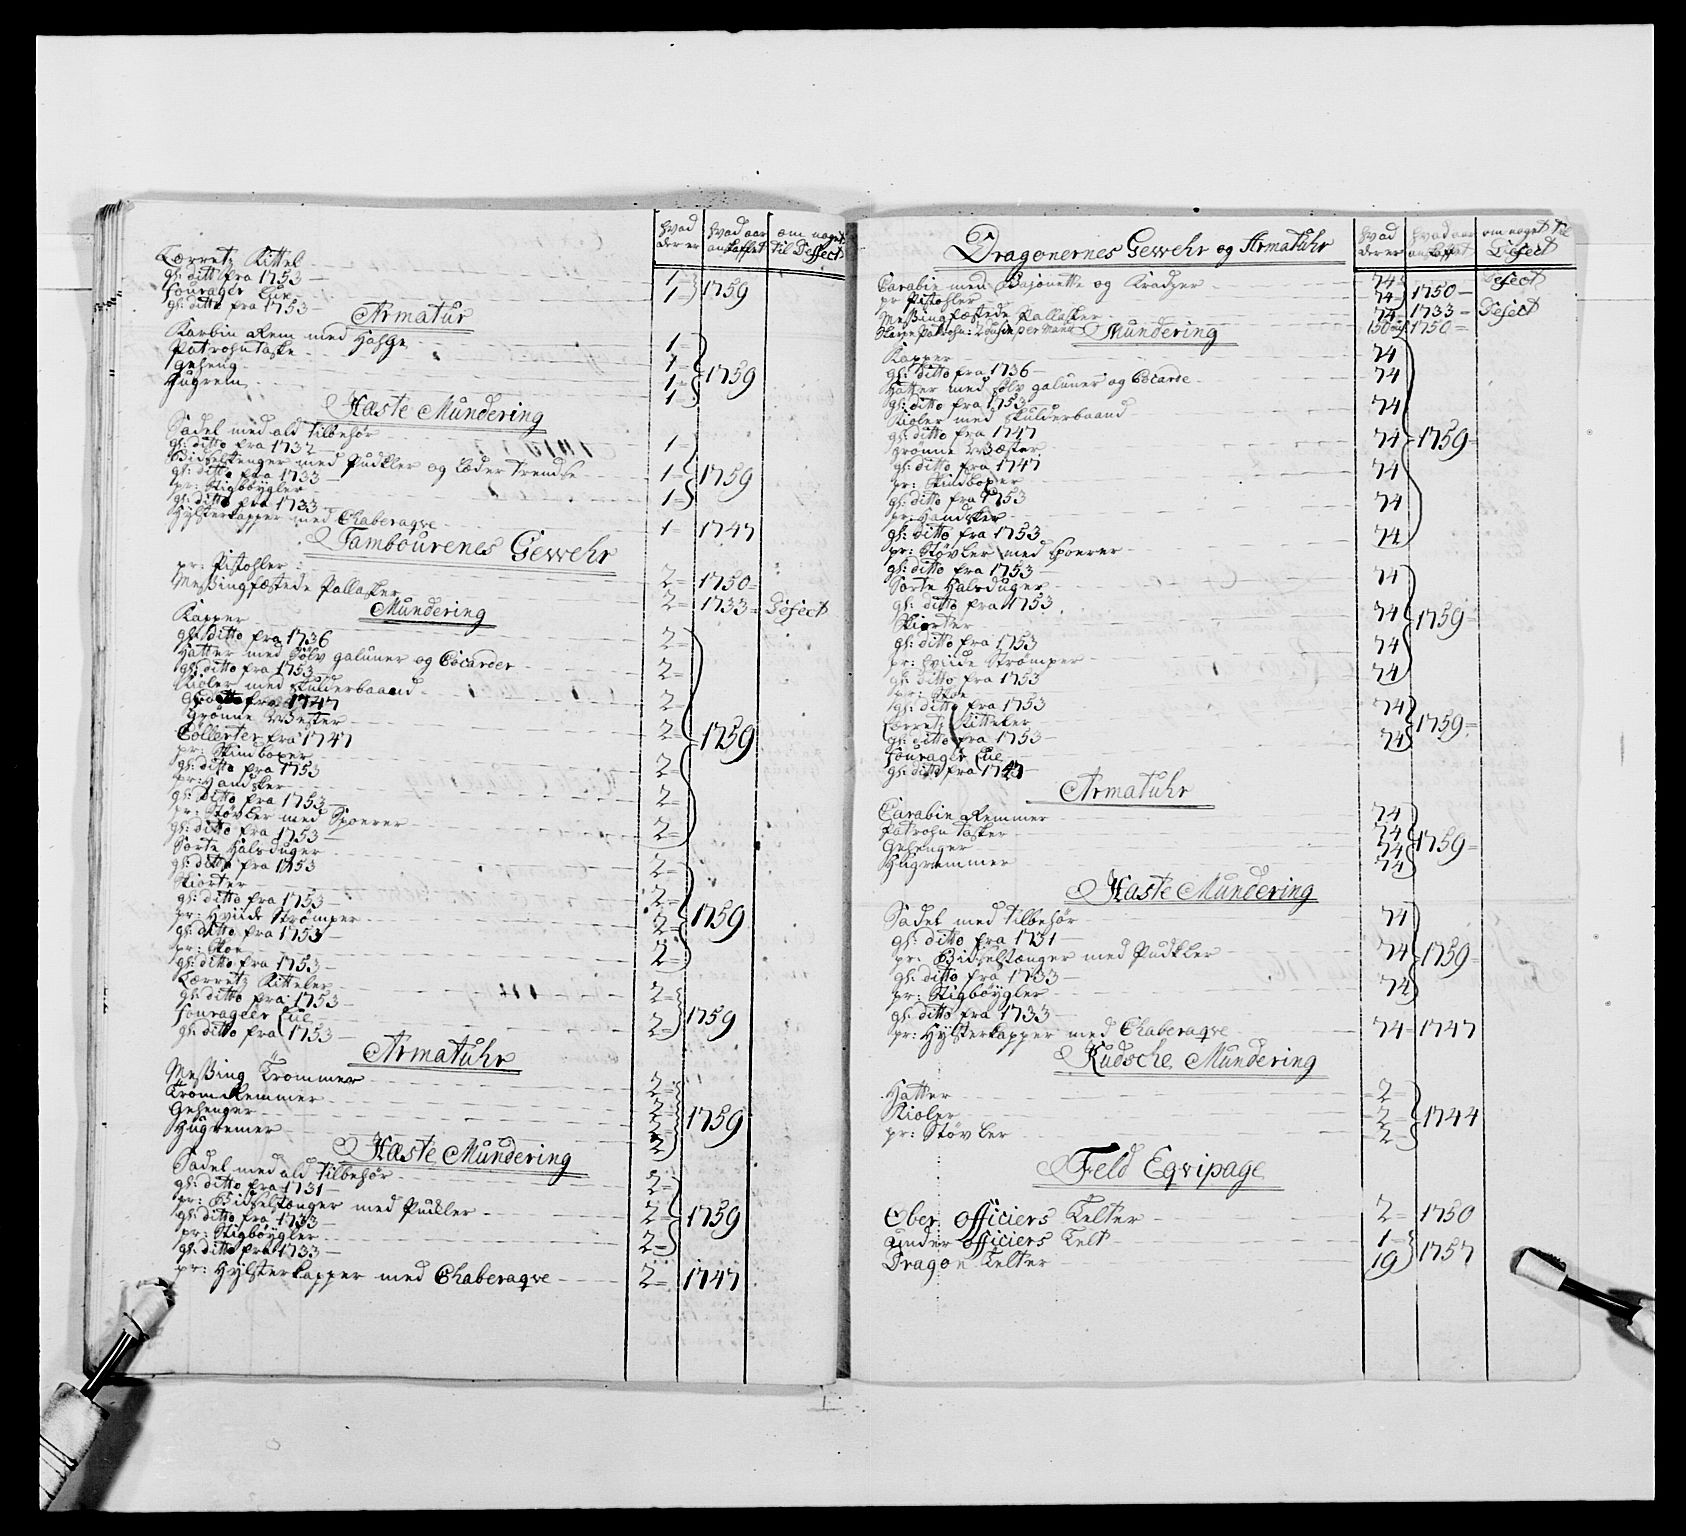 hvad der er
hvad aar anskaffet
om noget til Defect
Lerretz Kittel
gl: ditto fra 1753 — 1
fourager Lue
gl: ditto fra 1753 — 1 = 1759
Armatur
Karbin Rem med Hahge 1
Patrohntaske 1
geheng 1 = 1759
Hugrem 1
Hæste Mundering
Sadel med ald tilbehør
gl: ditto fra 1732 — 1
Bidselstenger med Puckler og Læder trendse
gl: ditto fra 1733 — 1 = 1759
pr: Stigbøygler
gl: ditto fra 1733 — 1
Hylsterkapper med Chaberaqve 1 = 1747
Tambourenes Gewehr
pr: Pistohler 2 = 1750 =
Meßingfæstede Pallasker 2 = 1733 = Defect
Mundering
Kapper
gl: ditto fra 1736 2 =
Hatter med Sølv galuner og Cocarder
gl: ditto fra 1753 2 =
Kioler med skulderbaand
gl: ditto fra 1747 2
Grønne Wester 2 =
Colletter fra 1747 1759
pr: Skindboxer
gl: ditto fra 1753 2 =
pr: Handsker
gl: ditto fra 1753 2 =
pr: Støvler med Sporer
gl: ditto fra 1753 2 =
Sorte Halsduger
gl: ditto fra 1753 2 =
Skiorter
gl: ditto fra 1753 2 =
pr: Hviide Strømper
gl: ditto fra 1753 2 = 1759
pr: Skoe
gl: ditto fra 1753 2 =
Lerretz Kitteler
gl: ditto fra 1753 2 =
fourageer Lue
gl: ditto fra 1753 2 = 1759
Armatuhr
Meßing Trommer 2 =
Trom Remmer 2 =
Gehenger 2 = 1759
Hugremer 2
Hæste Mundering
Sadel med ald tilbehør
gl: ditto fra 1731 2 =
pr: Bidselstænger med Puckler
gl: ditto fra 1733 2 = 1759
pr: Stigbøygler
gl: ditto fra 1733 2 =
pr: Hylsterkapper med Chaberaqve 2 = 1747
Dragonernes Gewehr og Armatuhr
hvad der er
hvad aar anskaffet
om noget til Defect
Carabin med Bajonette og Kradzer 74 = Defect
pr Pistohler 74 = 1750 =
Meßingfæstede Pallasker 74 = 1733 = Defect
1750 =
Mundering
Kapper
gl: ditto fra 1736 74
Hatter med Sølv galuner og Cocarde 74
gl: ditto fra 1753
Kioler med skulderbaand 74
gl: ditto fra 1747
Grønne Wæster 74 = 1759 =
gl: ditto fra 1747
pr: Skindboxer 74
gl: ditto fra 1753
pr: Handsker 74
gl: ditto fra 1753
pr: Støvler med Sporer 74
gl: ditto fra 1753
Sorte Halsduger 74
gl: ditto fra 1753
Skiorter 74 = 1759 =
gl: ditto fra 1753
pr: hviide Strømper 74
gl: ditto fra 1753
pr: Skoe 74
gl: ditto fra 1753
Lerretz Kitteler 74
gl: ditto fra 1753 1759 =
fourager Lue 74
gl: ditto fra
Armatuhr
Carabin Remmer 74
Patrohn tasker 74
Gehenger 74 = 1759 =
Hugremmer 74
Hæste Mundering
Sadel med tilbehør 74
gl: ditto fra 1731
pr: Bidselstænger med Puckler 74 = 1759 =
gl: ditto fra 1733
pr: Stigbøygler 74
gl: ditto fra 1733
pr: Hylsterkapper med Chaberaqve 74 = 1747
Kudsche Mundering
Hatter = 2 =
Kioler = 2 = 1744
pr: Støvler = 2 =
Feld Eqvipage
Ober officiers Telter 2 = 1750
under officiers Telt 1 =
Dragon Telter 19 1757